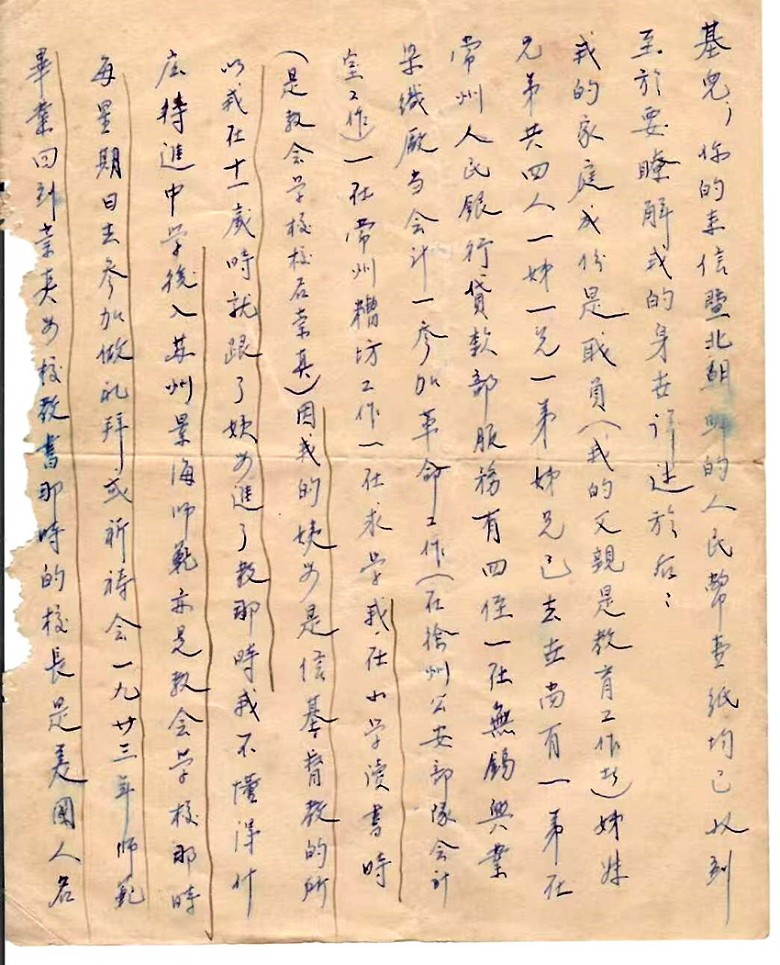 基兒，你的来信暨北朝鮮的人民幣壹纸均已收到
至於要瞭解我的身世详述於后：
我的家庭成份是职員（我的父親是教育工作者）姊妹
兄弟共四人一姊一兄一弟姊兄已去世尚有一弟在
常州人民銀行貸款部服務有四侄一在無錫興業
染織厰当会計一参加革命工作（在徐州公安部隊会計
室工作）一在常州糟坊工作一在求学我在小学读書時
（是教会学校校名崇真）因我的姨母是信基督教的所
以我在十一歲時就跟了姨母進了教那時我不懂得什
広待進中学後入苏州景海师範亦是教会学校那時
每星期日去参加做礼拜或祈祷会一九廿三年师範
畢業回到崇真女校教書那時的校長是美國人名